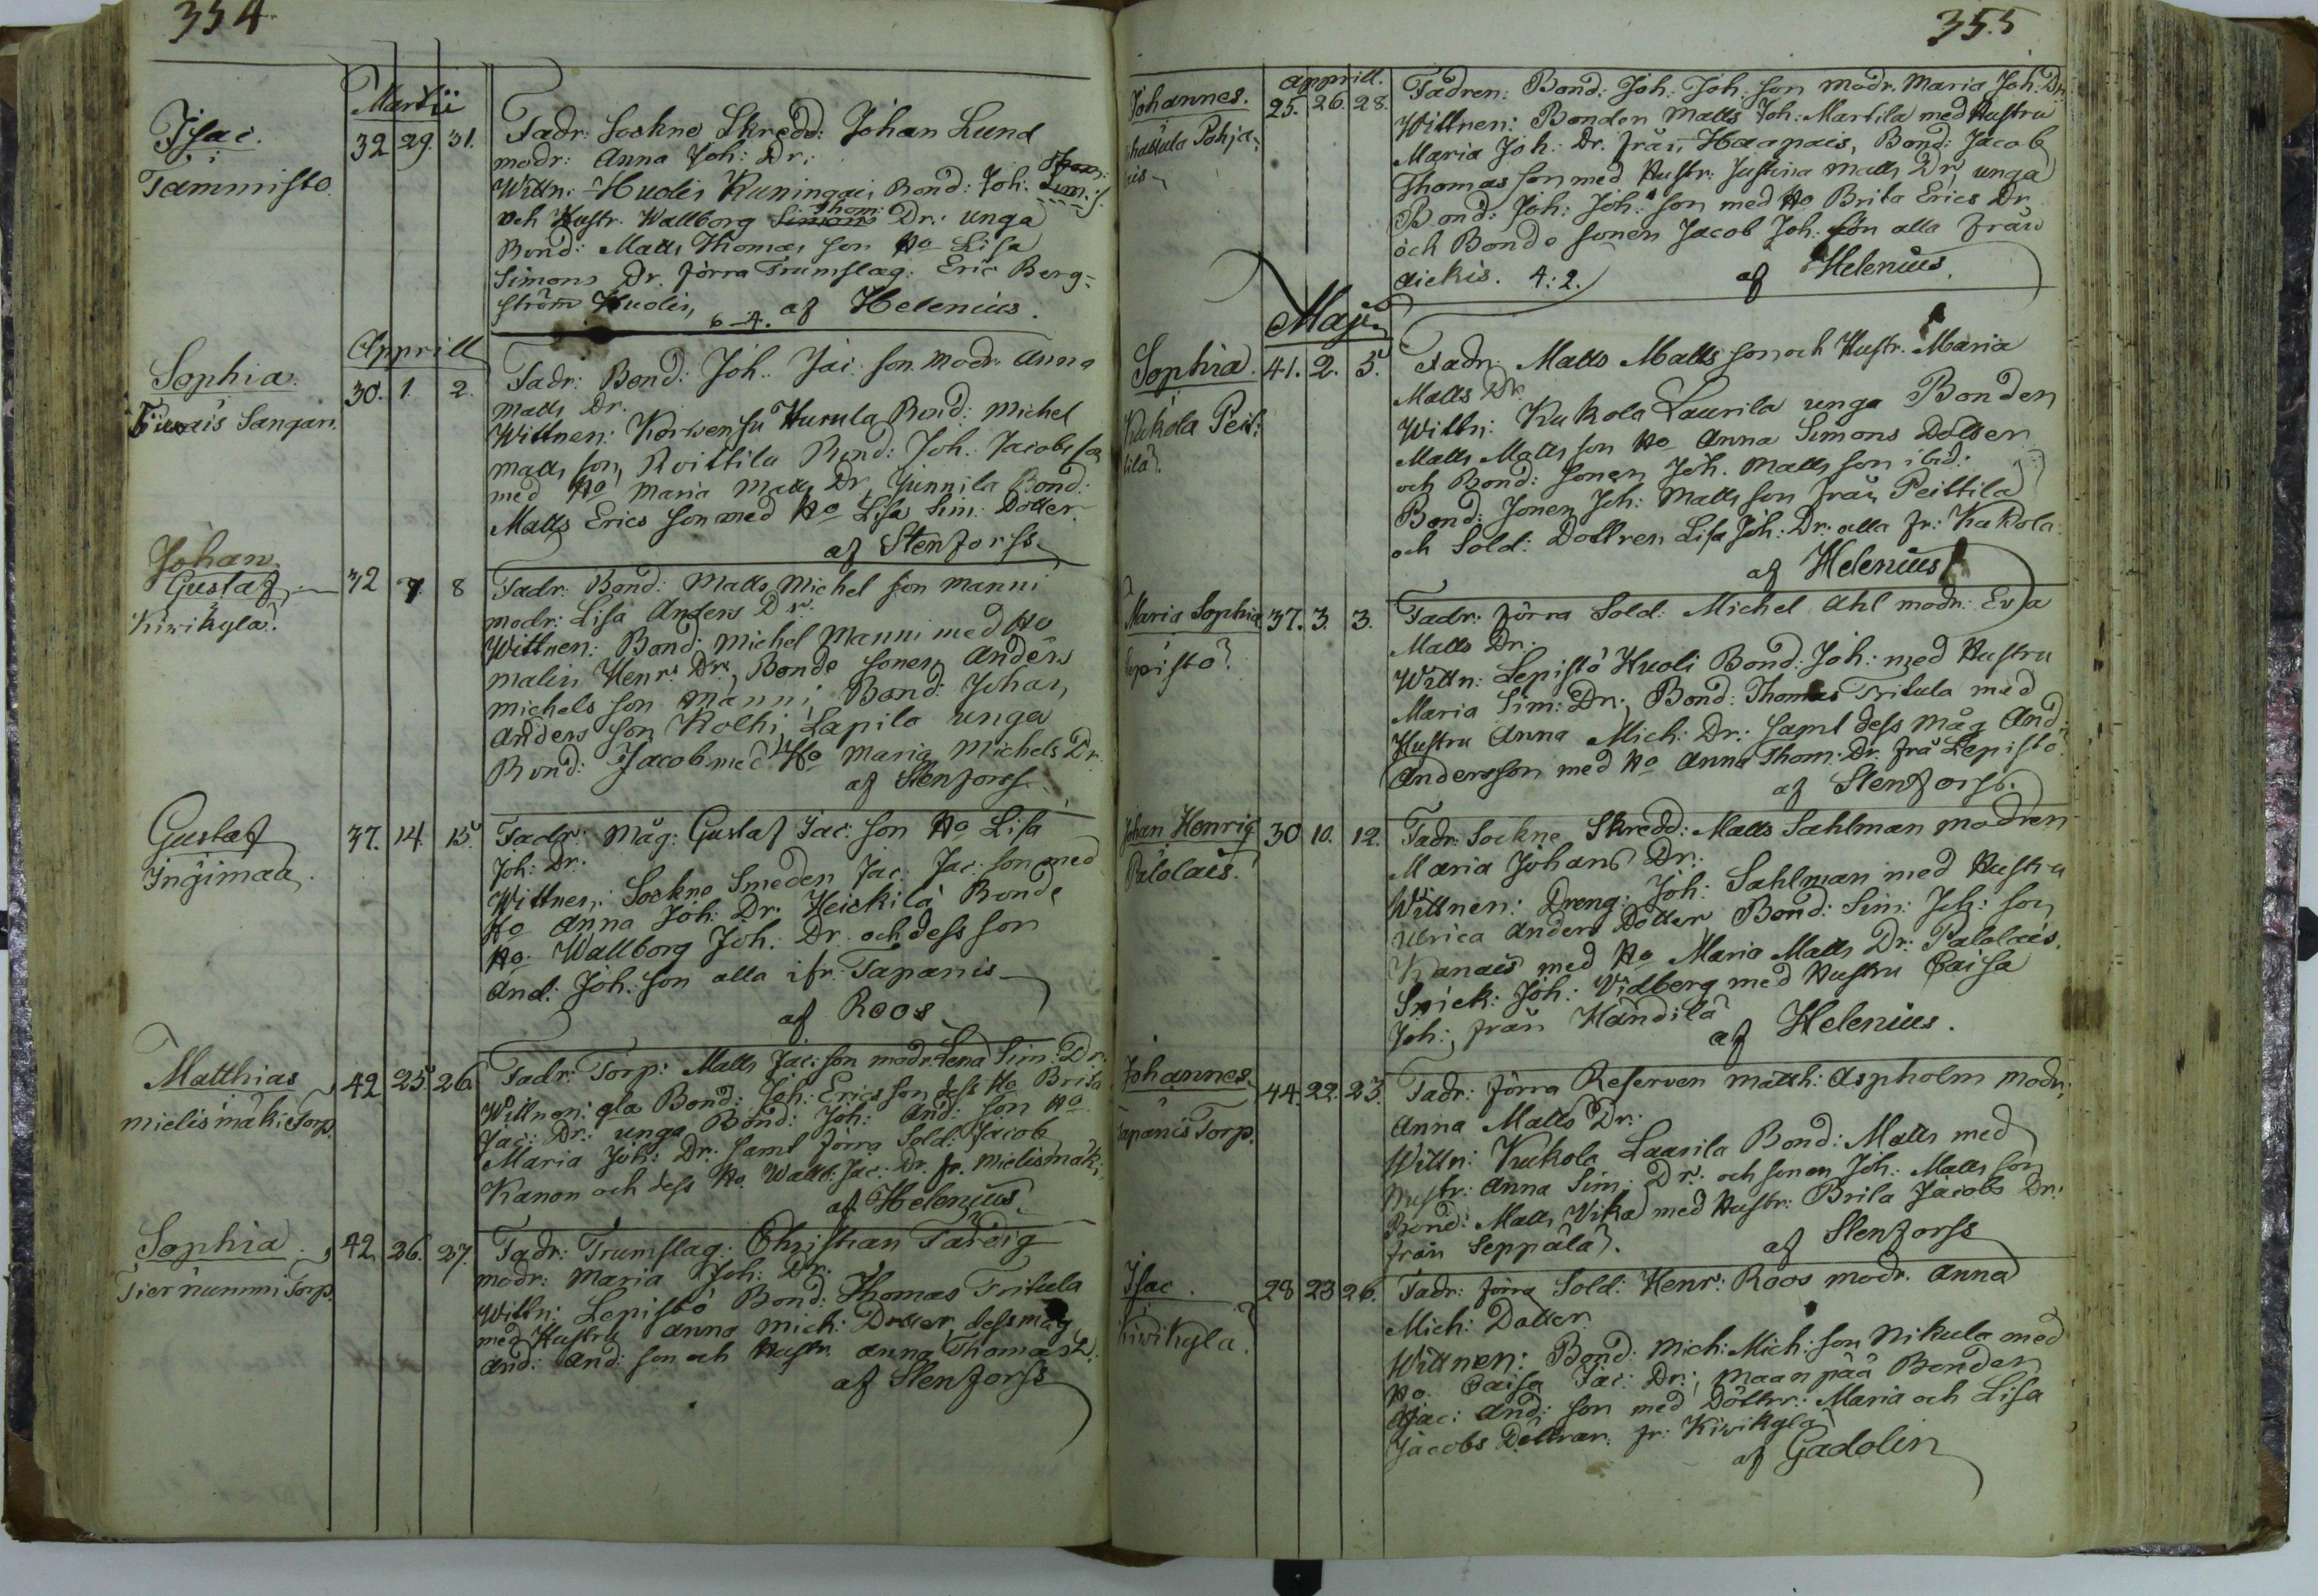 354.
Martii
Isac. 32 29. 31.
i
Tammisto.
Fadr: Sockne Skredd: Johan Lund
modr: Anna Joh: Dr:
Wittn: Hudis Kuningai, Bond: Joh: Sim: S.
och Hustr. Wallborg Thom: Dr: unga
Bond: Matts Thomas son Ho Lisa
Simons Dr. förra Trumslag: Eric Berg-
ström Hudis,
6-4. af Helenius.
Apprill
Sophia. 30. 1. 2.
Sangari.
Fadr: Bond: Joh: Jac: son modr. Anna
Matts Dr.
Wittnen: Korwensu Hurula Bond: Michel
Matts son, Roittila Bond: Joh. Jacobs son
med Ho Maria Matts Dr, Junnila Bond:
Matts Erics son med Ho Lisa Sim: Dotter.
af Stenforss.
Johan
Gustaf, 32 7. 8
Kiwikyla.
Fadr: Bond: Matts Michel son Manni
modr: Lisa Anders Dr.
Wittnen: Bond: Michel Manni med Ho
Malin Henr: Dr, Bonde sonen Anders
Michels son Manni, Bond: Johan
Anders son Kolhi, Lapila unga
Bond: Jacob med Ho Maria Michels Dr.
af Stenforss.
Gustaf 37. 14. 15.
Ingimaa.
Fadr: Måg: Gustaf Jac: son Ho Lisa
Joh: Dr.
Wittnen: Sockne Smeden Jac: Jac: son med
Ho Anna Joh: Dr: Heickilä Bonde
Ho. Wallborg Joh: Dr. och dess son
And: Joh: son alla ifr: Tapanis
af Roos.
Matthias 42 25 26.
mielismäki Torp.
Fadr: Torp: Matts Jac: son modr: Lena Sim: Dr.
Wittnen: gla Bond: Joh: Erics son dess Ho Brita
Jac: Dr: unga Bond: Joh: And: son Ho
Maria Joh: Dr. samt förra Sold: Jacob
Kanon och dess Ho. Wallb: Jac: Dr. fr. Mielismäki
af Helenius.
Sophia. 42 26. 27.
Tiernummi Torp.
Fadr: Trumslag: Christian Färdig
modr: Maria Joh: Dr:
Wittn: Lepistö Bond: Thomas Tritula
med Hustru Anna Mich: Dotter, dess måg
And: And: son och Hustr. Anna Thomas D.
af Stenforss
355
Apprill.
Johannes. 25. 26. 28.
Pohja-
Fadren: Bond: Joh: Joh: son modr. Maria Joh: Dr
Wittnen: Bonden Matts Joh: Martila med Hustru
Maria Joh: Dr. från Haapais, Bond: Jacob
Thomas son med Hustr: Justina Matts Dr, unga
Bond: Joh: Joh: son med Ho Brita Erics Dr
och Bonde sonen Jacob Joh: son alla från
Aickis. 4:2. af Helenius.
Maji
Sophia. 41. 2. 5.
Kukola Peit-
tila.
Fadr: Matts Matts son och Hustr. Maria
Matts Dr.
Wittn: Kukola Laurila unga Bonden
Matts Matts son Ho Anna Simons Dotter
och Bond: sonen Joh. Matts son ibid:
Bond: sonen Joh: Matts son från Peittila
och Sold: Dottren Lisa Joh: Dr: alla fr: Kukola.
af Helenius
Maria Sophia 37. 3. 3.
Lepistö.
Fadr: förra Sold: Michel Ahl modr: Eva
Matts Dr:
Wittn: Lepistö Huoli Bond: Joh: med Hustru
Maria Sim: Dr; Bond: Thomas Tritula med
Hustru Anna Mich: Dr: samt dess måg And:
Andersson med Ho Anna Thom: Dr. frå Lepistö.
af Stenforss.
Johan Henrig 30 10. 12.
i
Palolais.
Fadr: Sockne Skredd: Matts Sahlman modren
Maria Johans Dr:
Wittnen: Dreng: Joh: Sahlman med Hustru
Ulrica Anders Dotter Bond: Sim: Joh: son
Kanais med Ho Maria Matts Dr: Palolais.
Snick: Joh: Vidberg med Hustru Caisa
Joh: från Händilä
af Helenius.
Johannes 44. 22. 23.
i
Tapanis Torp.
Fadr: förra Reserven Matth: Aspholm modr:
Anna Matts Dr:
Wittn: Kukola Laurila Bond: Matts med
Hustr: Anna Sim: Dr: och sonen Joh: Matts son
Bond: Matts Wika med Hustr: Brita Jacobs Dr:
från Seppälä.
af Stenforss
Isac. 28 23 26.
i
Kiwikyla.
Fadr: förra Sold: Henr: Roos modr. Anna
Mich: Dotter.
Wittnen: Bond: Mich: Mich: son Nikula med
Ho. Caisa Jac: Dr:, Maanpää Bonden
Jac: And: son med Döttrr: Maria och Lisa
Jacobs Döttrar. fr: Kiwikyla
af Gadolin